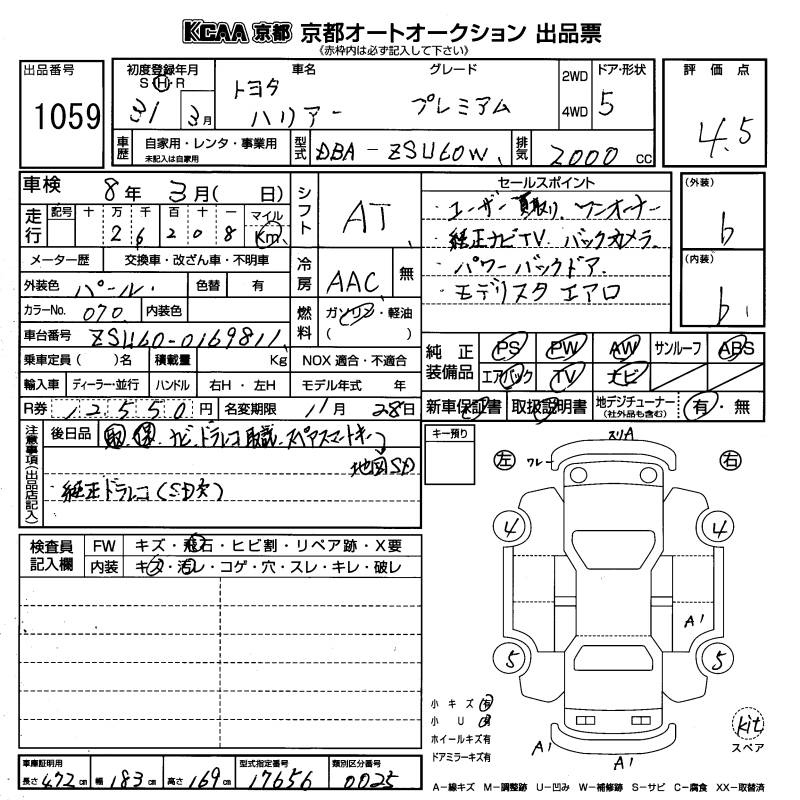 KCAA 京都 京都オートオークション 出品票
《赤枠内は必ず記入して下さい》
出品番号 1059
初度登録年月 S・H・R 31 3月
車名 トヨタ ハリアー
グレード プレミアム
2WD 4WD
ドア・形状 5
評価点 4.5
車歴 自家用・レンタ・事業用 未記入は自家用
型式 DBA-ZSU60W
排気 2000 CC
車検 8年 3月( 日)
走行 記号 十 万 千 百 十 一 マイル Km
2 6 2 0 8
メーター歴 交換車・改ざん車・不明車
外装色 パール 色替 有
カラーNo. 070 内装色
車台番号 ZSU60-0169811
乗車定員( )名 積載量 Kg
輸入車 ディーラー・並行 ハンドル 右H・左H
R券 12550円 名変期限 11月 28日
シフト AT
冷房 AAC 無
燃料 ガソリン・軽油 ( )
NOX 適合・不適合
モデル年式 年
セールスポイント
・ユーザー買取り ワンオーナー
・純正ナビTV. バックカメラ.
・パワーバックドア.
・モデリスタ エアロ
(外装) b
(内装) b
純正装備品 PS PW AW サンルーフ ABS
エアバック TV ナビ
新車保証書 取扱説明書 地デジチューナー (社外品も含む) 有・無
注意事項(出品店記入)
後日品 取 保 ナビ、ドラレコ取説、スペアスマートキー
地図SD
純正ドラレコ(SD欠)
キー預り
検査員記入欄 FW キズ・飛石・ヒビ割・リペア跡・X要
内装 キズ・汚レ・コゲ・穴・スレ・キレ・破レ
スリA
ワレ
左 右
4 4
A1
5 5
小キズ 有
小U 有
ホイールキズ有
ドアミラーキズ有
A1 A1
kit
スペア
車庫証明用 長さ 472 cm 幅 183 cm 高さ 169 cm
型式指定番号 17656
類別区分番号 0025
A-線キズ M-調整跡 U-凹み W-補修跡 S-サビ C-腐食 XX-取替済